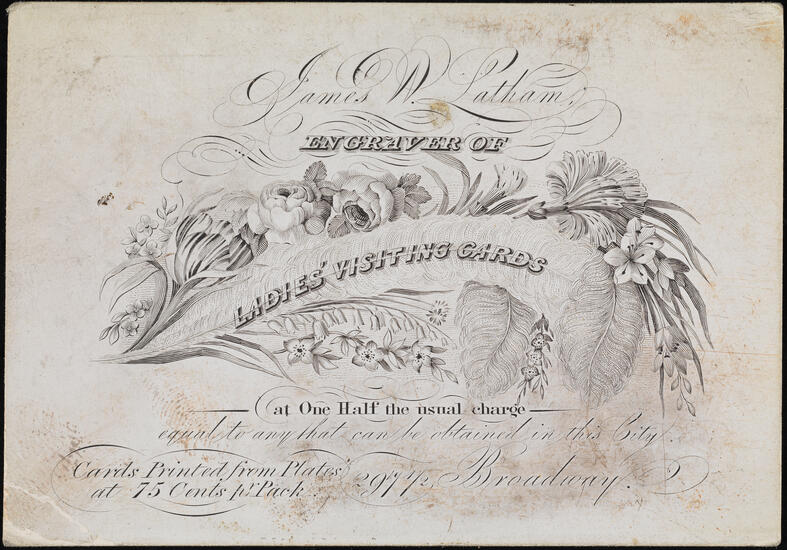 James W. Latham,
ENGRAVER OF
LADIES' VISITING CARDS
at One Half the usual charge
equal to any that can be obtained in this City.
Cards Printed from Plates
at 75 Cents pr Pack.
297½ Broadway.